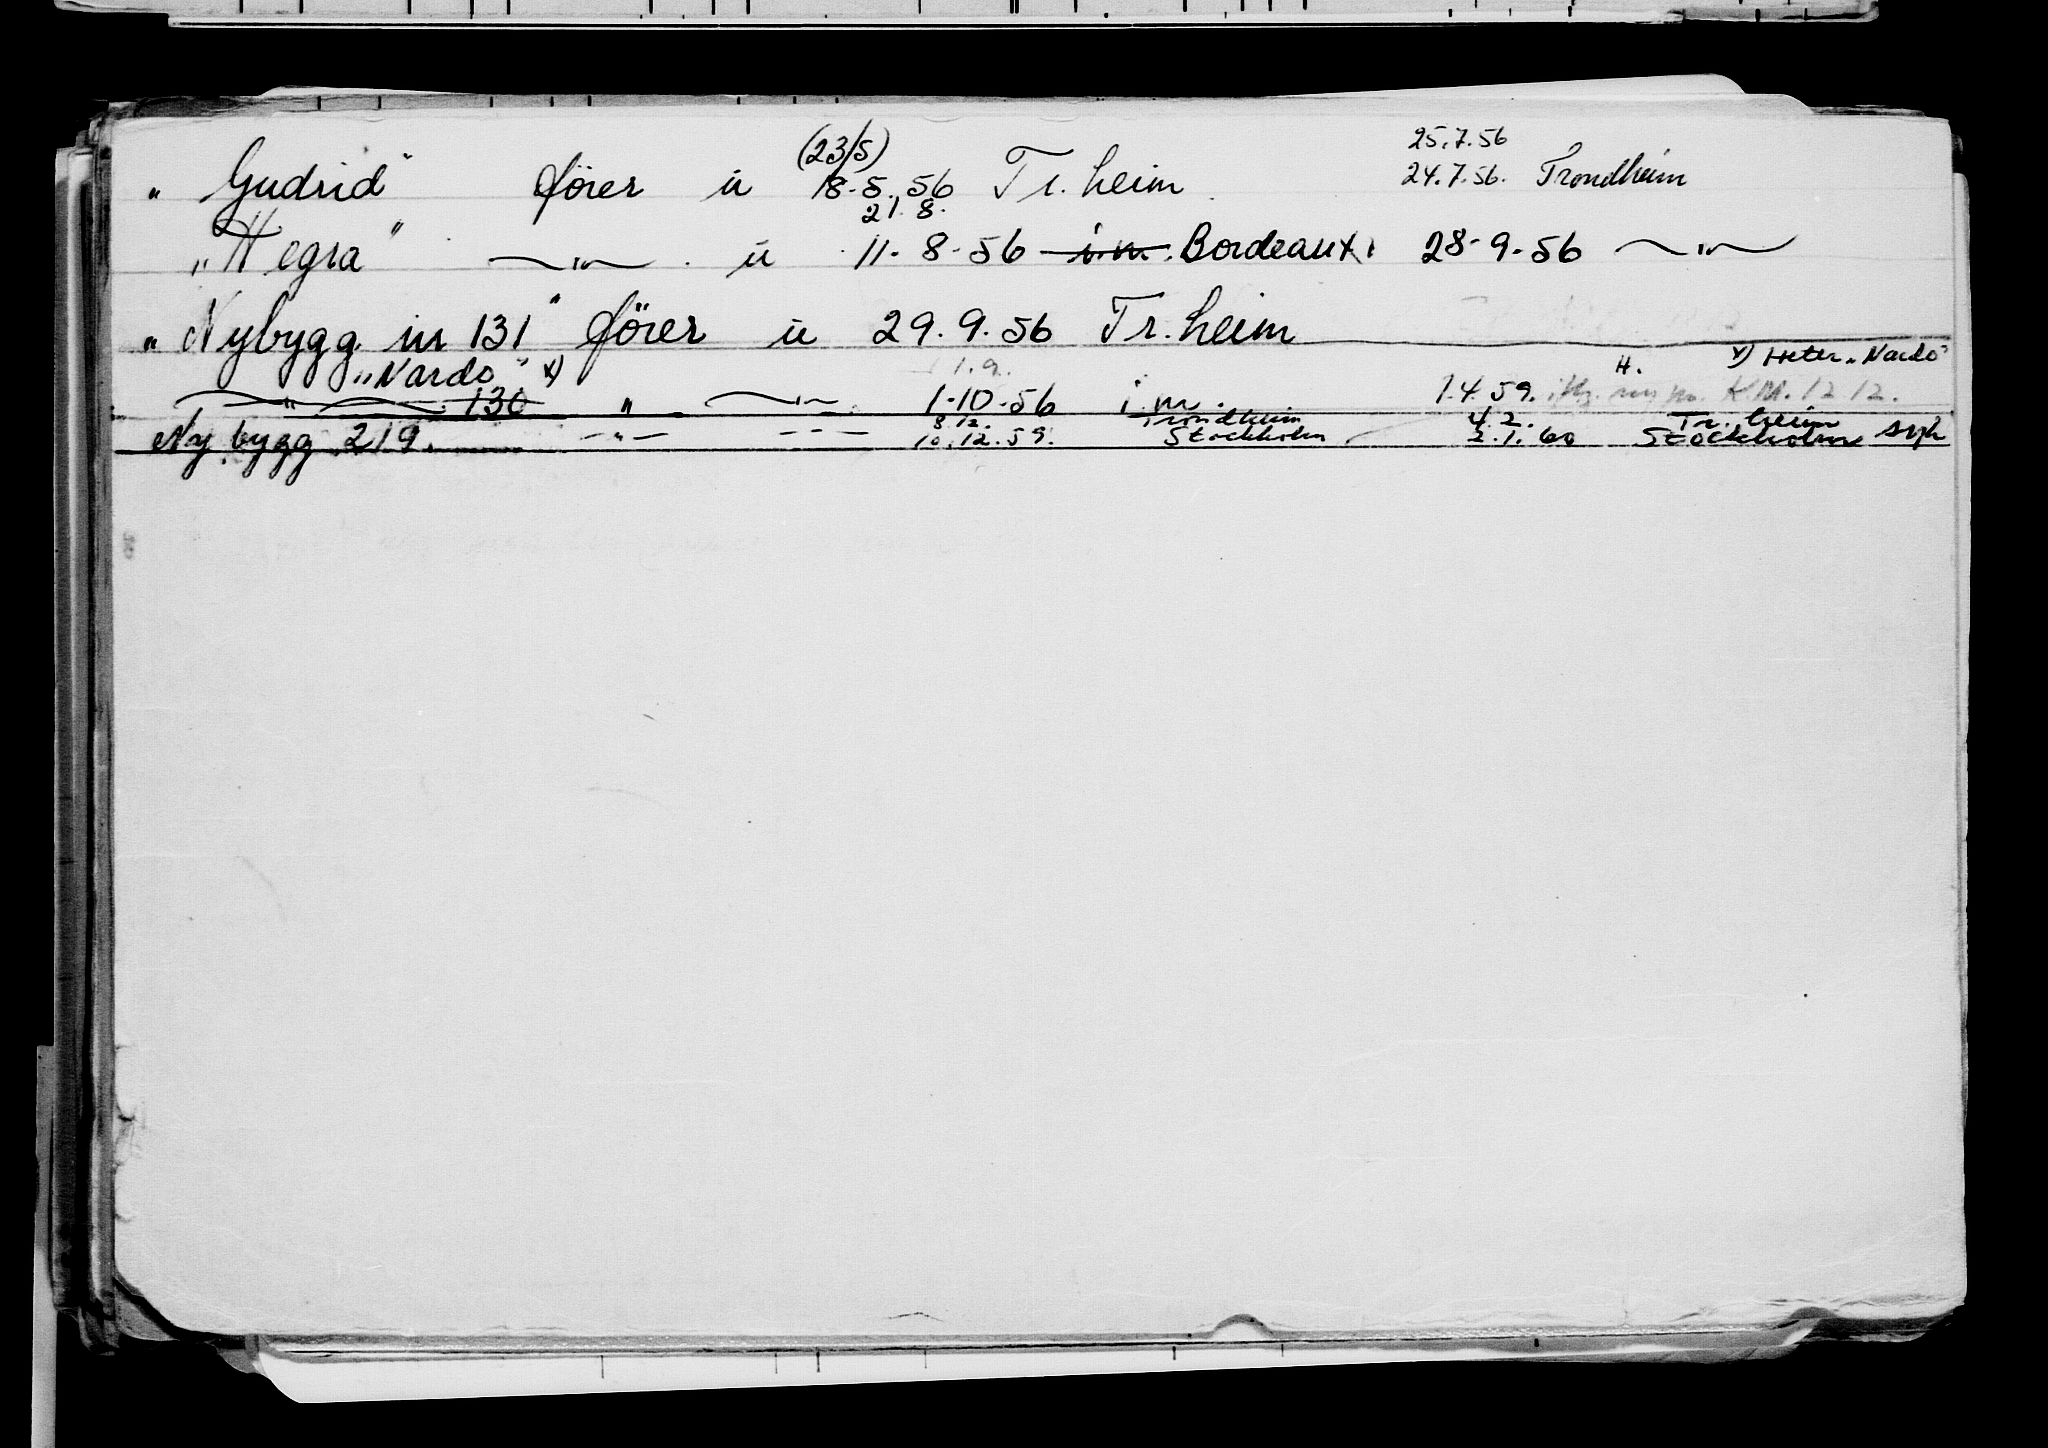 (23/5) 25.7.56
„Gudrid" fører u 18.5.56 Tr.heim 24.7.56. Trondheim
21.8.
„Hegra" —„— u 11-8-56 i.m. Bordeaux. 28-9-56 —„—
„Nybygg nr 131" fører u 29.9.56 Tr.heim
„Nardo" x) 1.9. H. x) Heter „Nardo"
—„— 130 „ —„— 1-10-56 i.m. 1.4.59. K.M. 12 12.
8.12. Trondheim 4.2. Tr.heim
Nybygg 219. —„— — — — 10.12.59. Stockholm 2.1.60 Stockholm syk